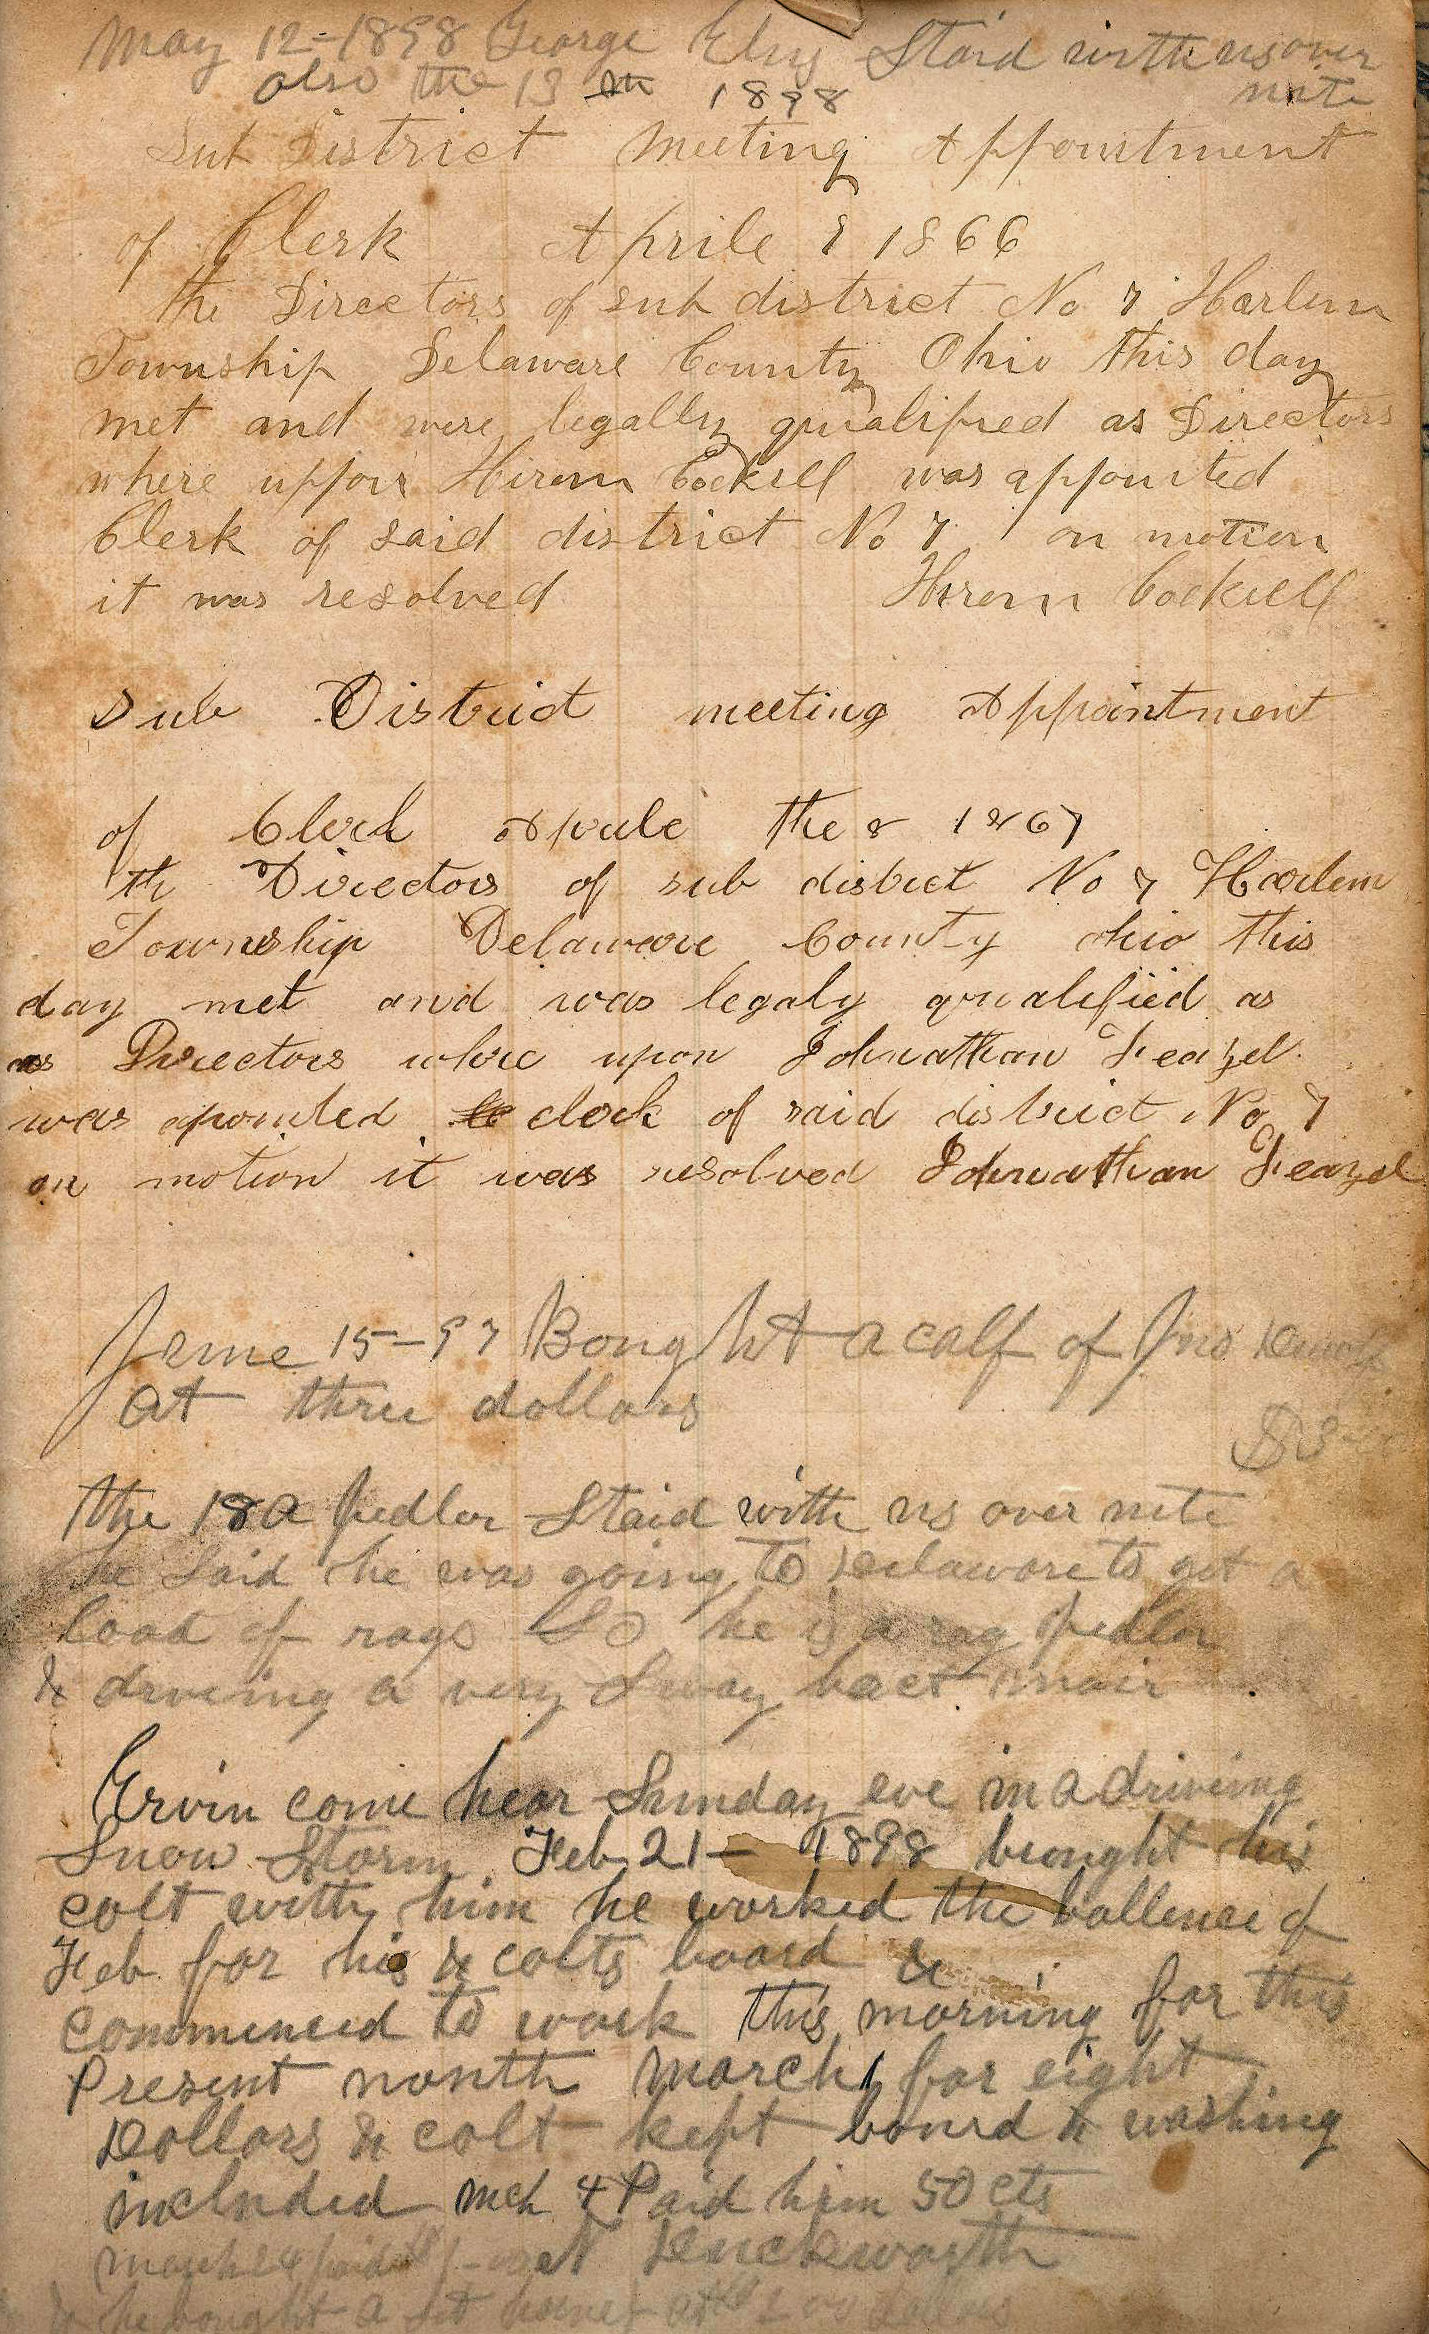 May 12-1898 George Staid with us over
also the 13 th 1898 nite
Sub District Meeting Appointment
of Clerk Aprile 8 1866
the Directors of sub district No 7 Harlem
Township Delaware County Ohio this day
met and were legally qualified as Directors
where uppon Hiram Cockrell was appointed
Clerk of said district No 7 on motion
it was resolved Hiram Cockrell
Sub District meeting Appointment
of Clerk Aprile the 8 1867
th Directors of sub district No 7 Harlem
Township Delaware County ohio this
day met and was legaly qualified as
as Directors where upon Johnathan Feazel
was apointed clerk of said district No 7
on motion it was resolved Johnathan Feazel
June 15-97 Bought a calf of Jno
at three dollars
$3
the 18 a Pedler Staid with us over nite
he Said he was going to Delaware to get a
load of rags So he is a rag Pedler
& driveing a very Sway back mair
Ervin come hear Sunday eve in a driveing
Snow Storm Feb 21- 1898 brought his
colt with him he worked the ballence of
Feb for his & colts board &
commenced to work this morning for this
Present month March for eight
Dollars & colt kept board & washing
included Mch 4 Paid him 50 cts
march 24 paid at Duckworth
& he bought a dollars